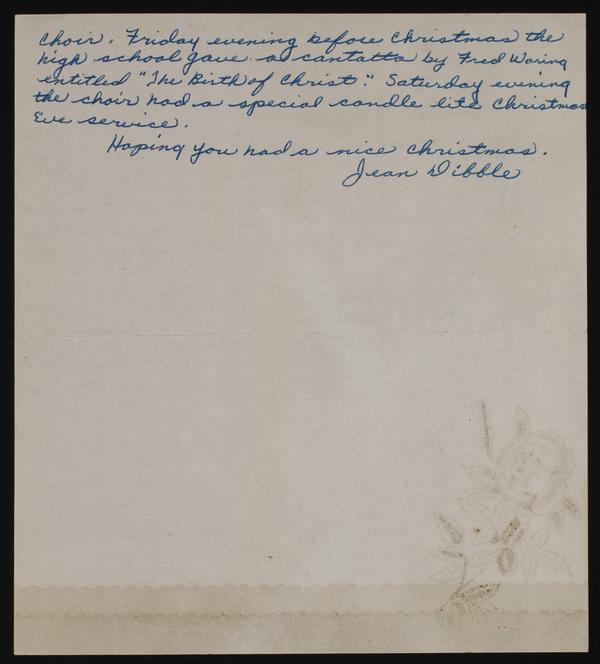 choir. Friday evening before Christmas the
high school gave a cantatta by Fred Waring
entitled "The Birth of Christ." Saturday evening
the choir had a special candle lite Christmas
Eve service.
Hoping you had a nice Christmas.
Jean Dibble